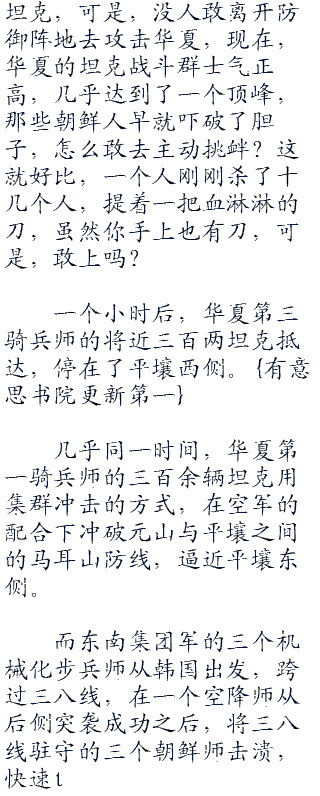 坦克，可是，没人敢离开防
御阵地去攻击华夏，现在，
华夏的坦克战斗群士气正
高，几乎达到了一个顶峰，
那些朝鲜人早就吓破了胆
子，怎么敢去主动挑衅？这
就好比，一个人刚刚杀了十
几个人，提着一把血淋淋的
刀，虽然你手上也有刀，可
是，敢上吗？
一个小时后，华夏第三
骑兵师的将近三百两坦克抵
达，停在了平壤西侧。{有意
思书院更新第一}
几乎同一时间，华夏第
一骑兵师的三百余辆坦克用
集群冲击的方式，在空军的
配合下冲破元山与平壤之间
的马耳山防线，逼近平壤东
侧。
而东南集团军的三个机
械化步兵师从韩国出发，跨
过三八线，在一个空降师从
后侧突袭成功之后，将三八
线驻守的三个朝鲜师击溃，
快速t